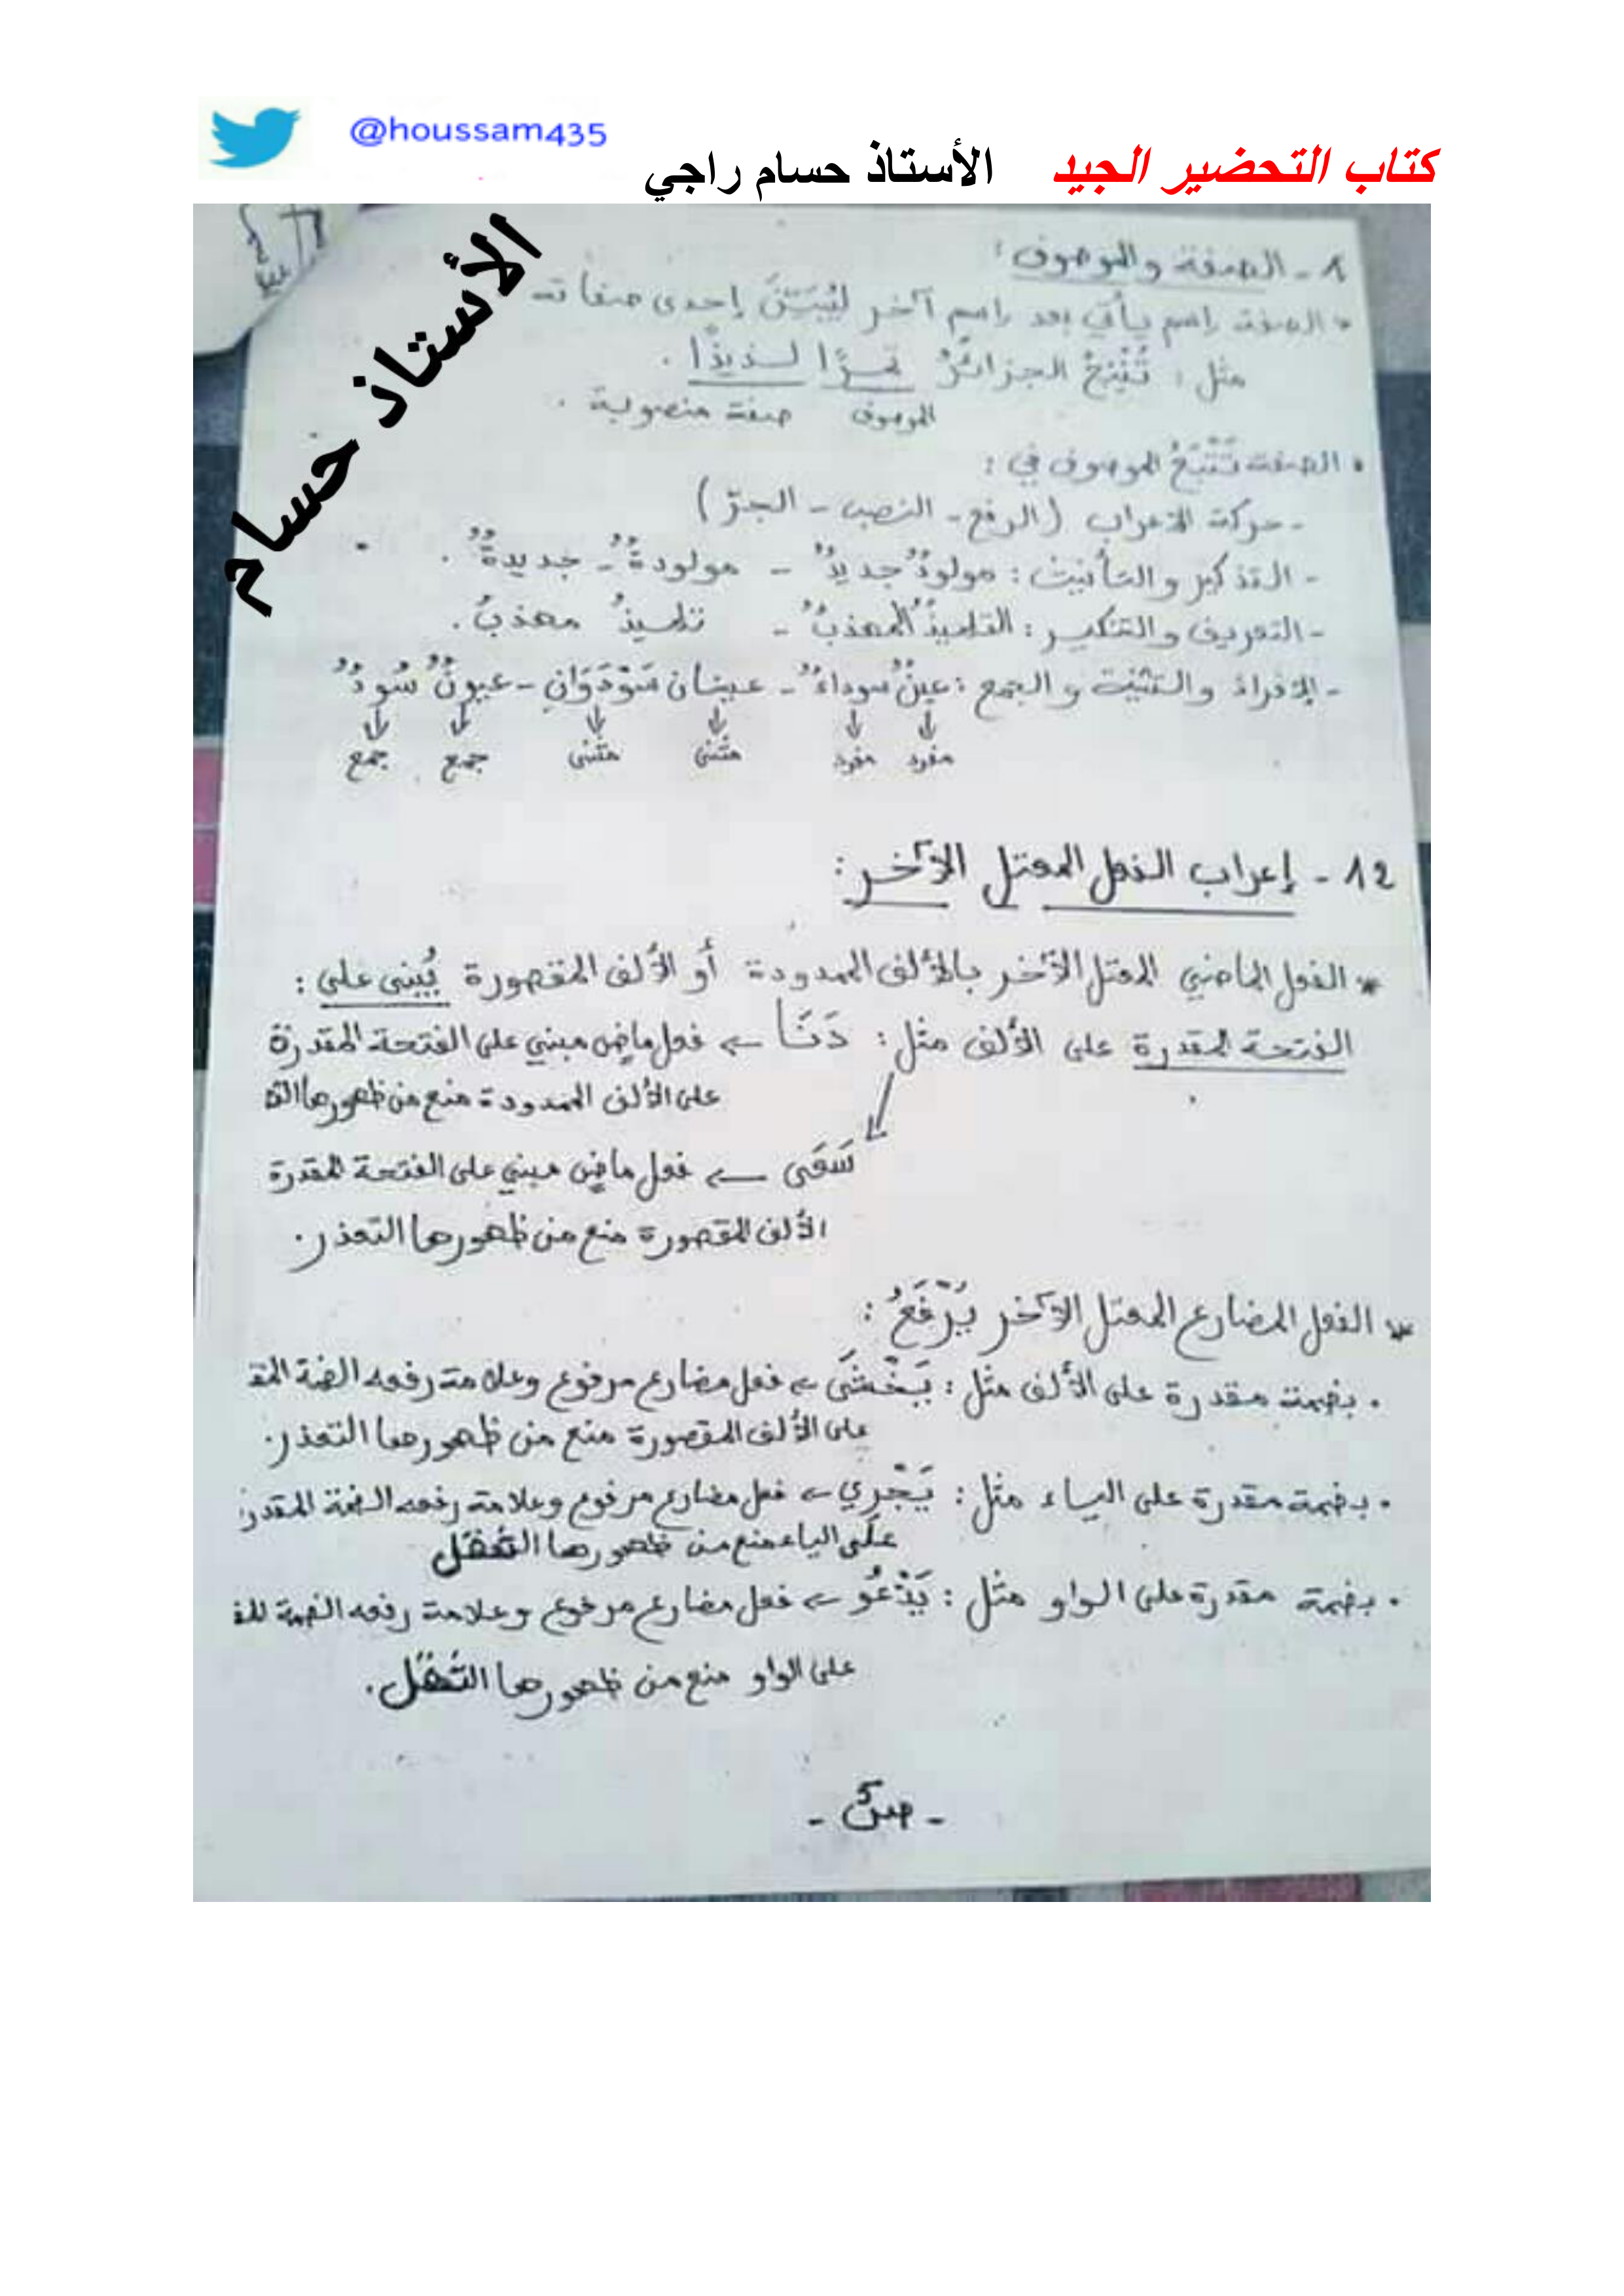 @houssam435
كتاب التحضير الجيد الأستاذ حسام راجي
الأستاذ حسام
1 - الصفة والموصوف :
• الصفة اسم يأتي بعد اسم آخر ليُبَيِّنَ إحدى صفاته
مثل : تُنْتِجُ الجزائرُ تمرًا لذيذًا .
الموصوف صفة منصوبة .
• الصفة تَتْبَعُ الموصوف في :
- حركة الإعراب (الرفع - النصب - الجرّ)
- التذكير والتأنيث : مولودٌ جديدٌ - مولودةٌ - جديدةٌ .
- التعريف والتنكير : التلميذُ المهذبُ - تلميذٌ مهذبٌ .
- الإفراد والتثنية والجمع : عينٌ سوداءٌ - عينان سَوْدَوَانِ - عيونٌ سُودٌ
مفرد مفرد مثنى مثنى جمع جمع
12 - إعراب الفعل المعتل الآخر :
* الفعل الماضي المعتل الآخر بالألف الممدودة أو الألف المقصورة يُبنى على :
الفتحة المقدرة على الألف مثل : دَنَا ← فعل ماضٍ مبني على الفتحة المقدرة
على الألف الممدودة منع من ظهورها الت
سَعَى ← فعل ماضٍ مبني على الفتحة المقدرة
الألف المقصورة منع من ظهورها التعذر .
* الفعل المضارع المعتل الآخر يُرْفَعُ :
• بضمة مقدرة على الألف مثل : يَخْشَى ← فعل مضارع مرفوع وعلامة رفعه الضمة المق
على الألف المقصورة منع من ظهورها التعذر .
• بضمة مقدرة على الياء مثل : يَجْرِي ← فعل مضارع مرفوع وعلامة رفعه الضمة المقدر
على الياء منع من ظهورها الثقل
• بضمة مقدرة على الواو مثل : يَدْعُو ← فعل مضارع مرفوع وعلامة رفعه الضمة المق
على الواو منع من ظهورها الثقل .
- ص5 -